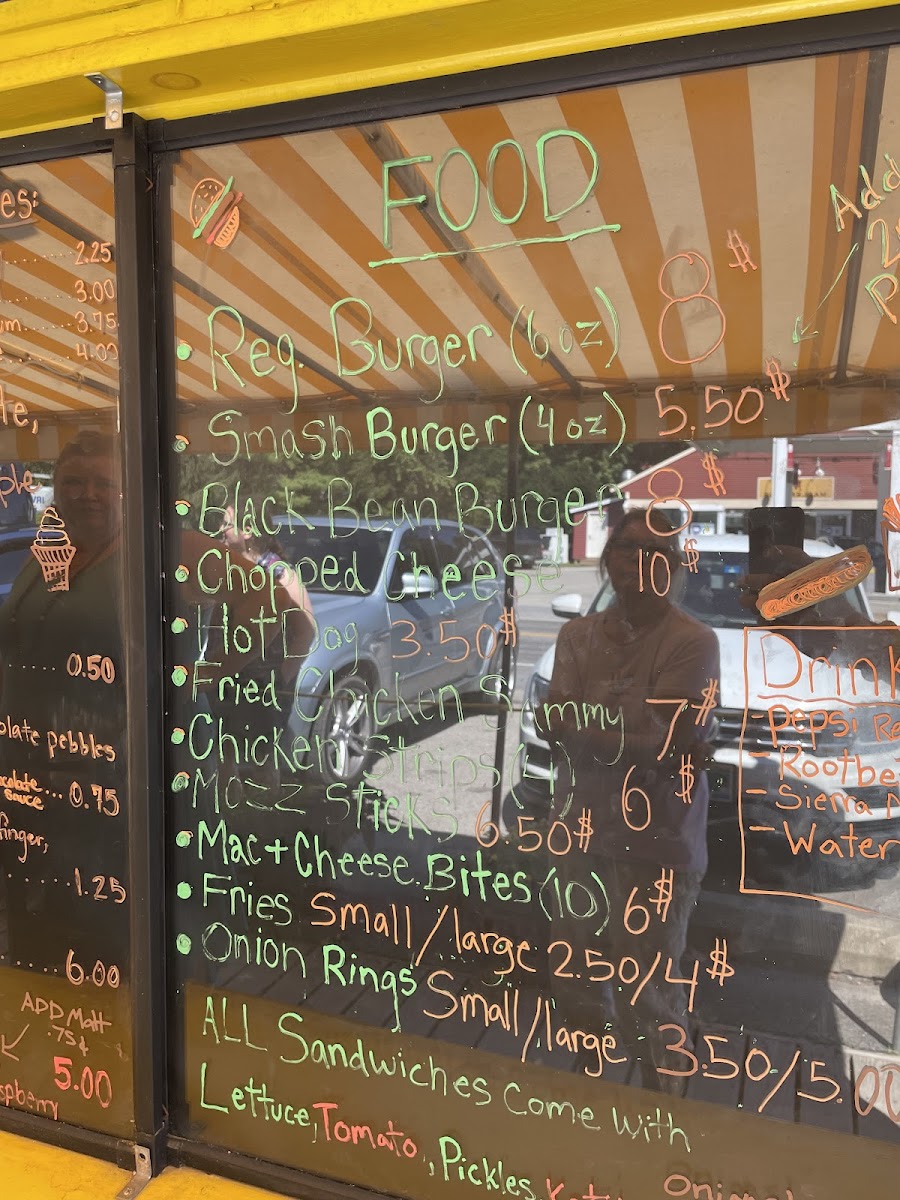 es:
2.25
3.00
um......3.75
4.00
te,
ple
..... 0.50
olate pebbles
sauce ... 0.75
finger,
1.25
..... 6.00
ADD Malt
.75¢
5.00
spberry
FOOD
• Reg. Burger (6oz) 8$
• Smash Burger (4oz) 5.50$
• Black Bean Burger 8$
• Chopped Cheese 10$
• Hot Dog 3.50$
• Fried Chicken Sammy 7$
• Chicken Strips (4) 6$
• Mozz Sticks 6.50$
• Mac + Cheese Bites (10) 6$
• Fries Small/large 2.50/4$
• Onion Rings Small/large 3.50/5.00
ALL Sandwiches Come With
Lettuce, Tomato, Pickles,
Add
Drink
- Pepsi
- Rootbe
- Sierra
- Water